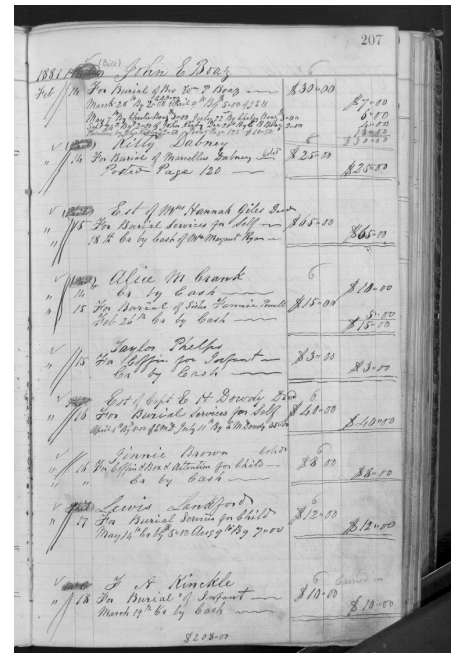 207
(Died)
1881 John E Boaz
Feb 14 For Burial of Bro W P Boaz $30-00
March 26th By 2-00 April 9th By 5-00 $7-00
May 7th By 3-00 July 22d By 3-00 6-00
Kitty Dabney
14 For Burial of Marcellus Dabney $25-00
Posted Page 120 $25-00
Est of Mrs Hannah Giles Decd
" 15 For Burial Services for Self $65-00
" 18th Cr by Cash of Mrs Margaret Ryan $65-00
Alice M Crank
14 Cr by Cash $10-00
" 15 For Burial of Sister Fannie $15-00
Feb 26th Cr by Cash 5-00
$15-00
Taylor Phelps
" 15 For Coffin for Infant $3-00
Cr by Cash $3-00
Est of Capt E H Dowdy Decd
" 16 For Burial Services for Self $40-00
July 11th By E M Dowdy $40-00
Jinnie Brown Cold
" 16 For Coffin Box & Attention for Child $8-00
" " Cr by Cash $8-00
Lewis Lankford
" 17 For Burial Services for Child $12-00
May 14th Cr By 5-00 Aug 9th By 7-00 $12-00
F A Kinckle
" 18 For Burial of Infant $10-00
March 19th Cr by Cash $10-00
$208-00